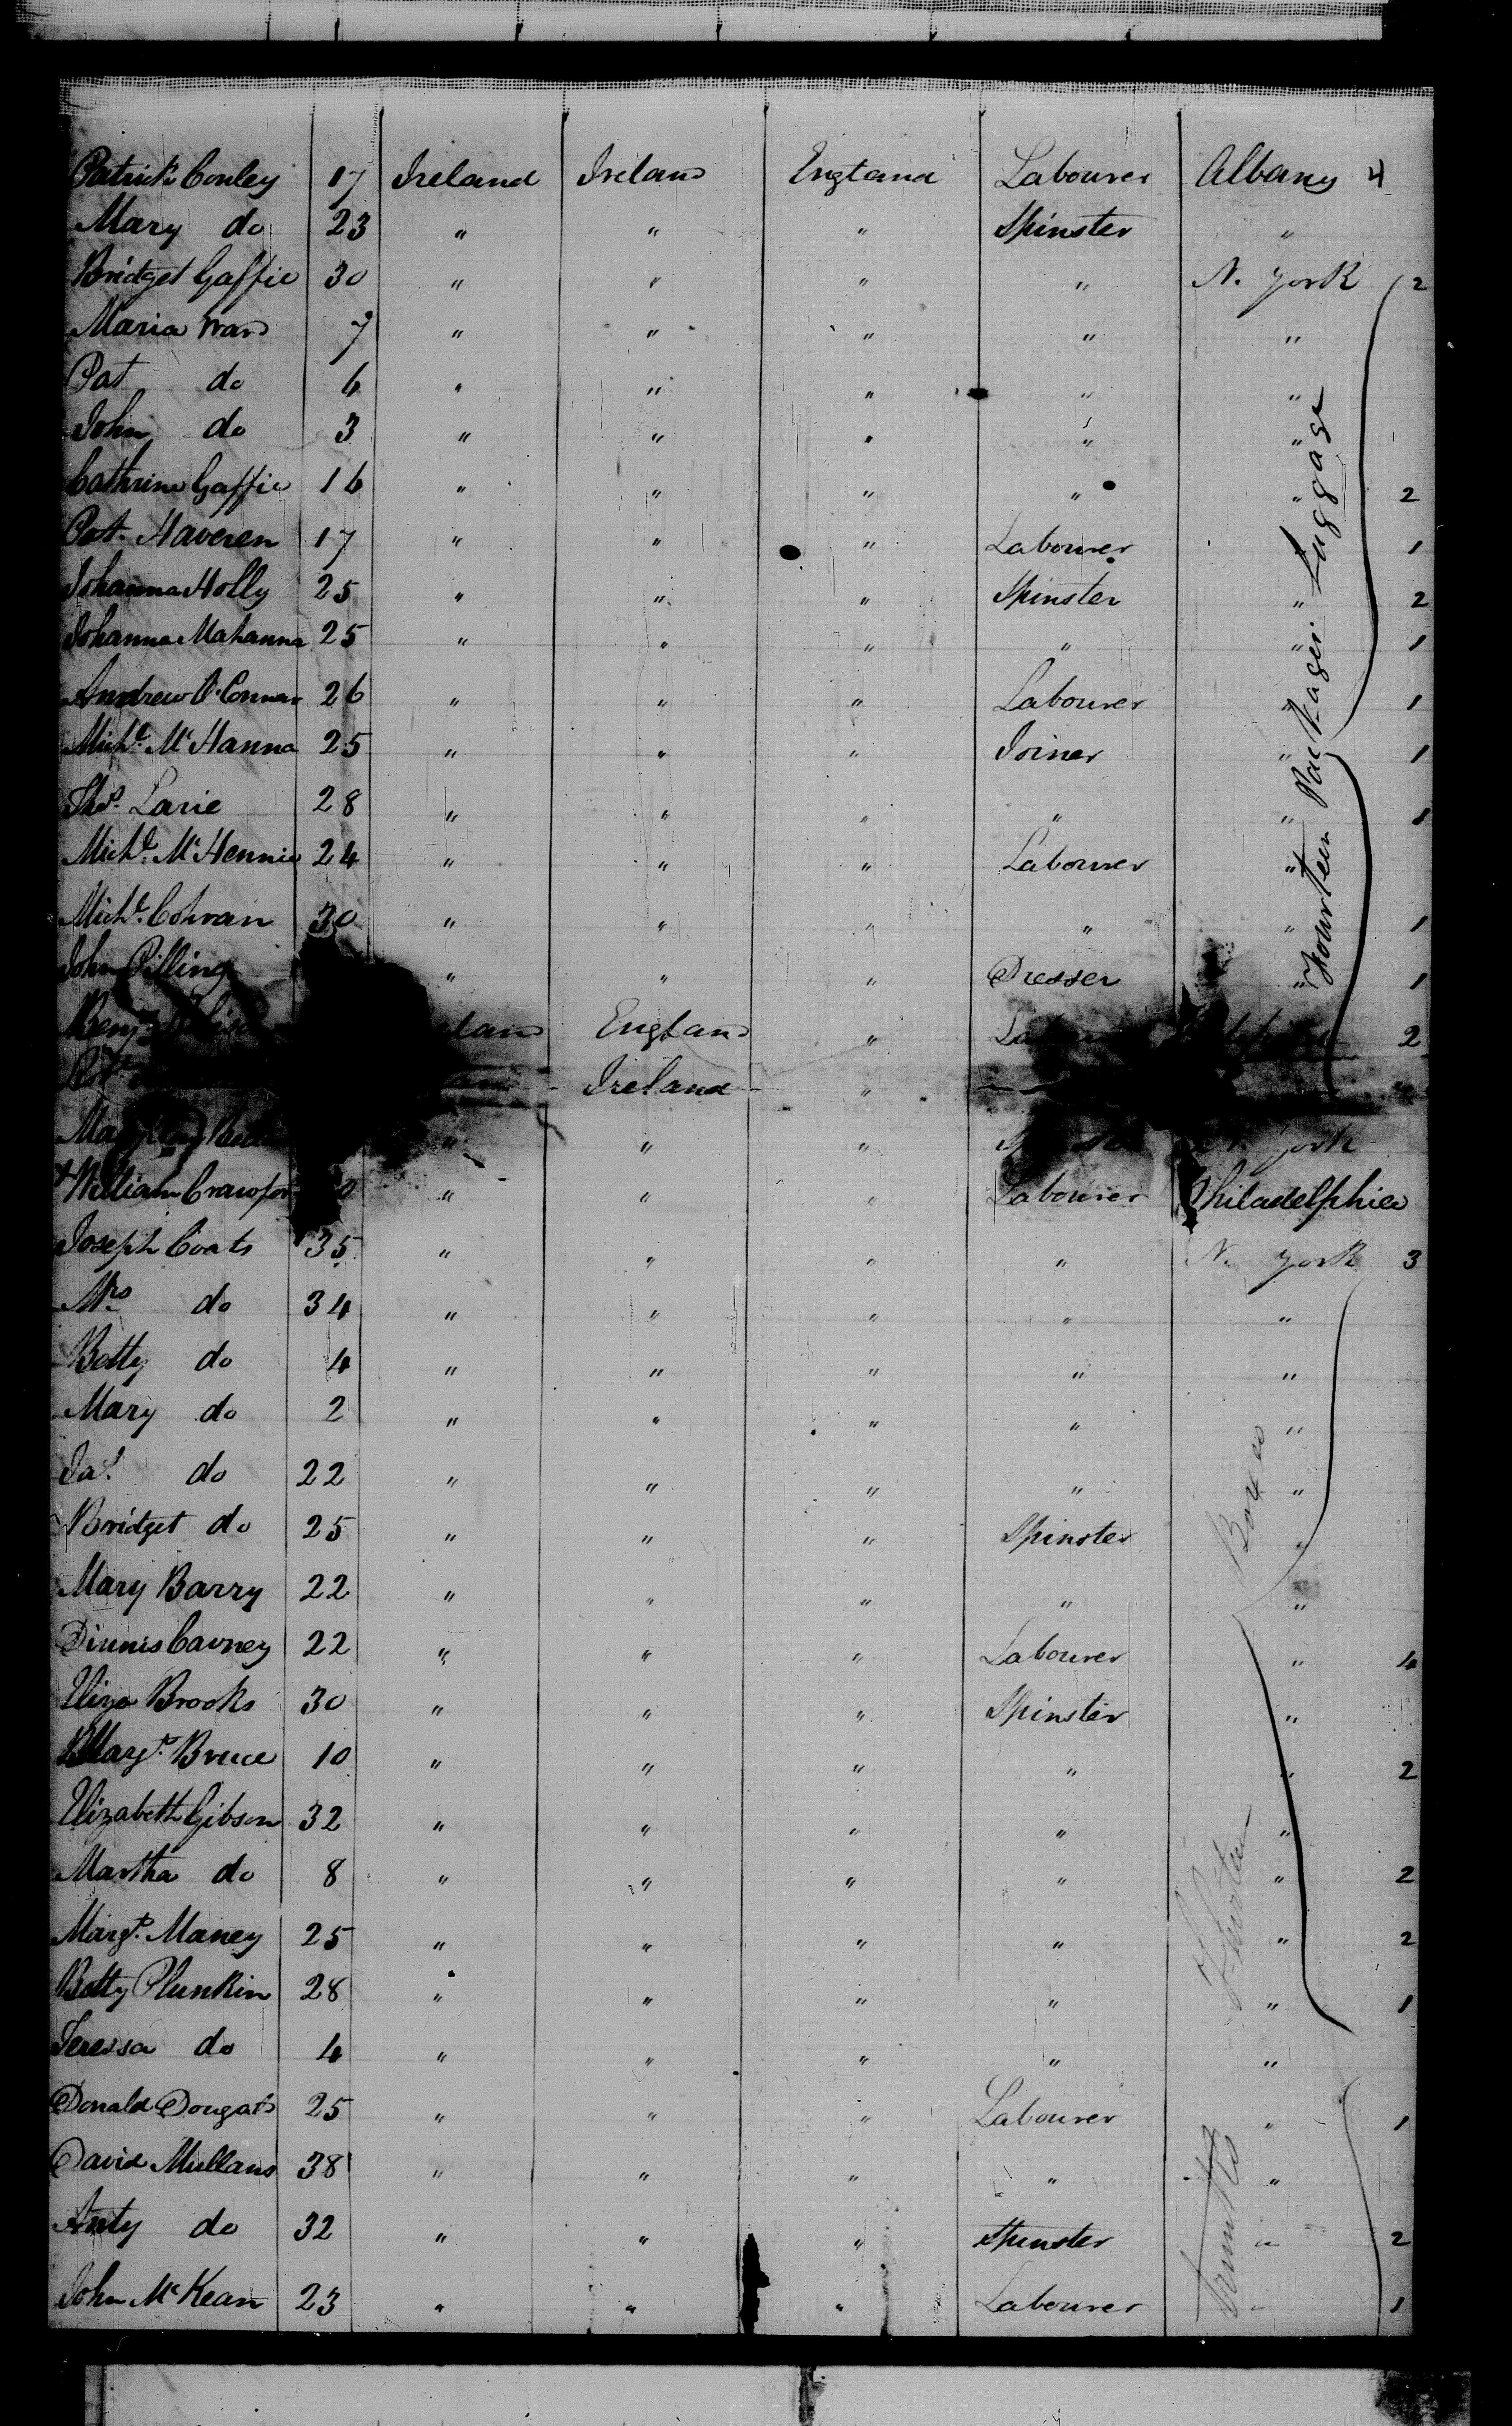 Patrick Conley 17 Ireland Ireland England Labourer Albany 4
Mary do 23 " " " Spinster "
Bridget Gaffie 30 " " " " N. York 2
Maria Ward 7 " " " " "
Pat do 6 " " " " "
John do 3 " " " " "
Cathrine Gaffie 16 " " " " " 2
Pat. Haveren 17 " " " Labourer 1
Johanna Holly 25 " " " Spinster " 2
Johanna Mahanna 25 " " " " " 1
Andrew O'Connor 26 " " " Labourer " 1
Michl. McHanna 25 " " " Joiner " 1
Thos. Larie 28 " " " " " 1
Michl. McHennie 24 " " " Labourer "
Michl. Cohran 30 " " " " " 1
John Pilling " " " Dresser " 1
Fourteen Packages Luggage
Benj. England " 2
Ireland "
" " " York
William Crawford " " " Labourer Philadelphia
Joseph Coats 35 " " " " N. York 3
Mrs do 34 " " " " "
Betty do 4 " " " " "
Mary do 2 " " " " "
Jas. do 22 " " " " "
Bridget do 25 " " " Spinster "
Mary Barry 22 " " " " "
Dinnis Cavney 22 " " " Labourer " 4
Eliza Brooks 30 " " " Spinster "
Margt. Bruce 10 " " " " " 2
Elizabeth Gibson 32 " " " " "
Martha do 8 " " " " " 2
Margt. Maney 25 " " " " " 2
Betty Plunkin 28 " " " " " 1
Teressa do 4 " " " " "
Boxes
Donald Dougals 25 " " " Labourer " 1
David Mullans 38 " " " " "
Anty do 32 " " " Spinster " 2
John McKean 23 " " " Labourer " 1
Trunks